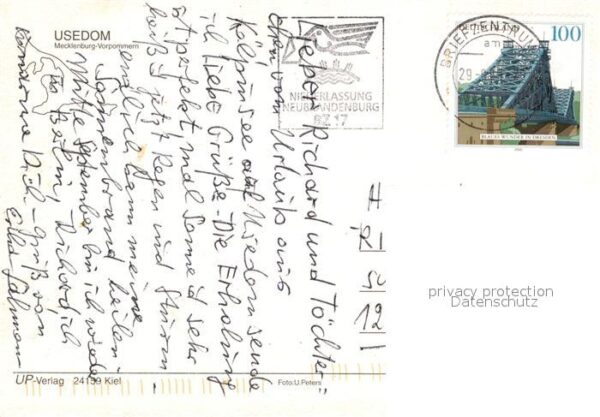 USEDOM
Mecklenburg-Vorpommern
NIEDERLASSUNG
NEUBRANDENBURG
BZ 17
BRIEFZENTRUM
29
100
BLAUES WUNDER IN DRESDEN
Lieber Richard und Töchter-
chen vom Urlaub aus
Kölpinsee auf Usedom sende
ich liebe Grüße. Die Erholung
ist perfekt mal Sonne sehr
heiß jetzt Regen und Sturm
endlich kann meine
Sonnenbrand heilen.
Mitte September bin ich wieder
in Berlin, Richard ich
umarme Dich - Gruß von
Erika
UP-Verlag 24159 Kiel
Foto: U. Peters
privacy protection
Datenschutz